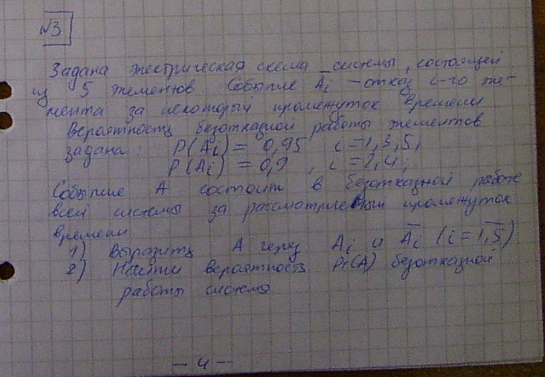 №3
Задана электрическая схема системы, состоящей
из 5 элементов. Событие Ai – отказ i-го эле-
мента за некоторый промежуток времени
Вероятность безотказной работы элементов
задана: P(Ai) = 0,95 i = 1,3,5;
P(Ai) = 0,9, i = 2,4;
Событие A состоит в безотказной работе
всей системы за рассматриваемый промежуток
времени
1) Выразить A через Ai и A̅i (i = 1,5)
2) Найти вероятность P(A) безотказной
работы системы
— 4 —